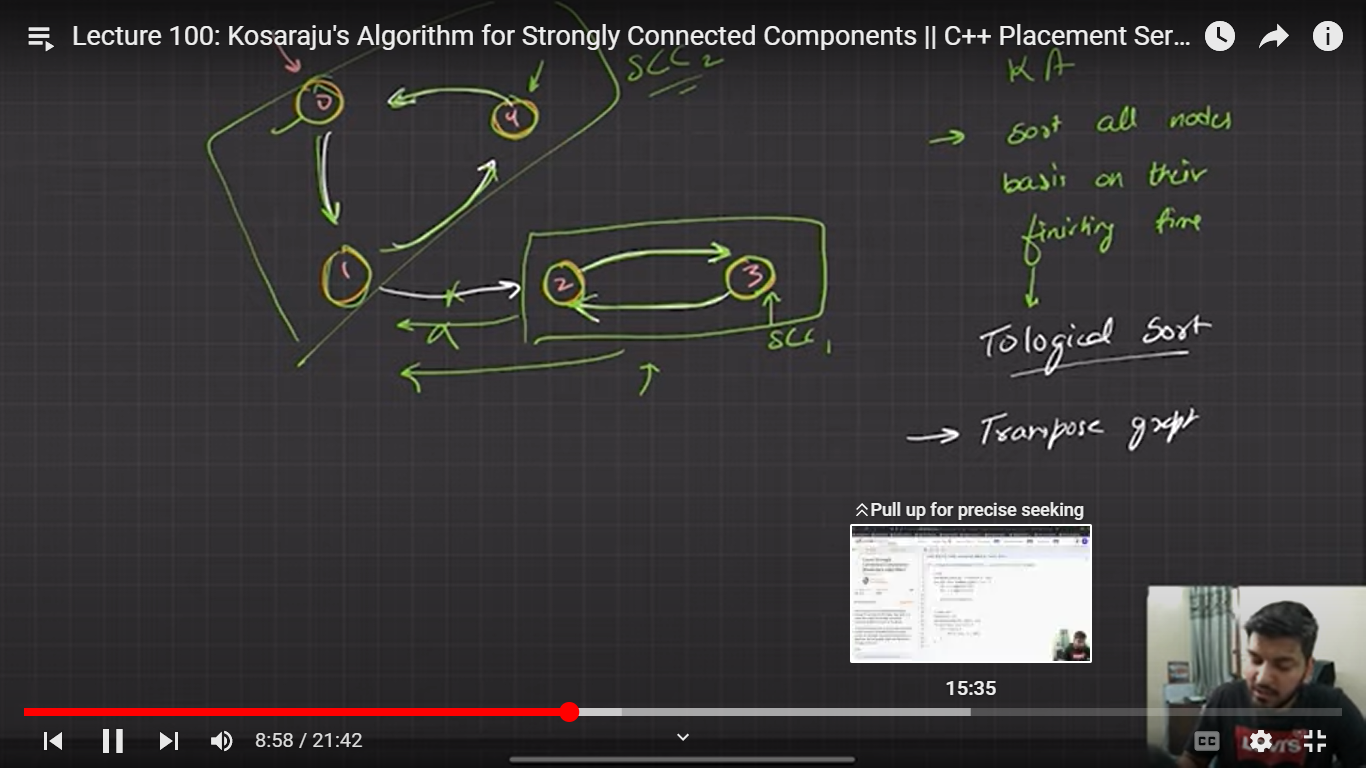 Lecture 100: Kosaraju's Algorithm for Strongly Connected Components || C++ Placement Ser...
SCC2
0
4
1
2
3
a
SCC1
KA
→ Sort all nodes
basis on their
finishing time
Tological Sort
→ Transpose graph
Pull up for precise seeking
15:35
8:58 / 21:42
CC
LEVI'S